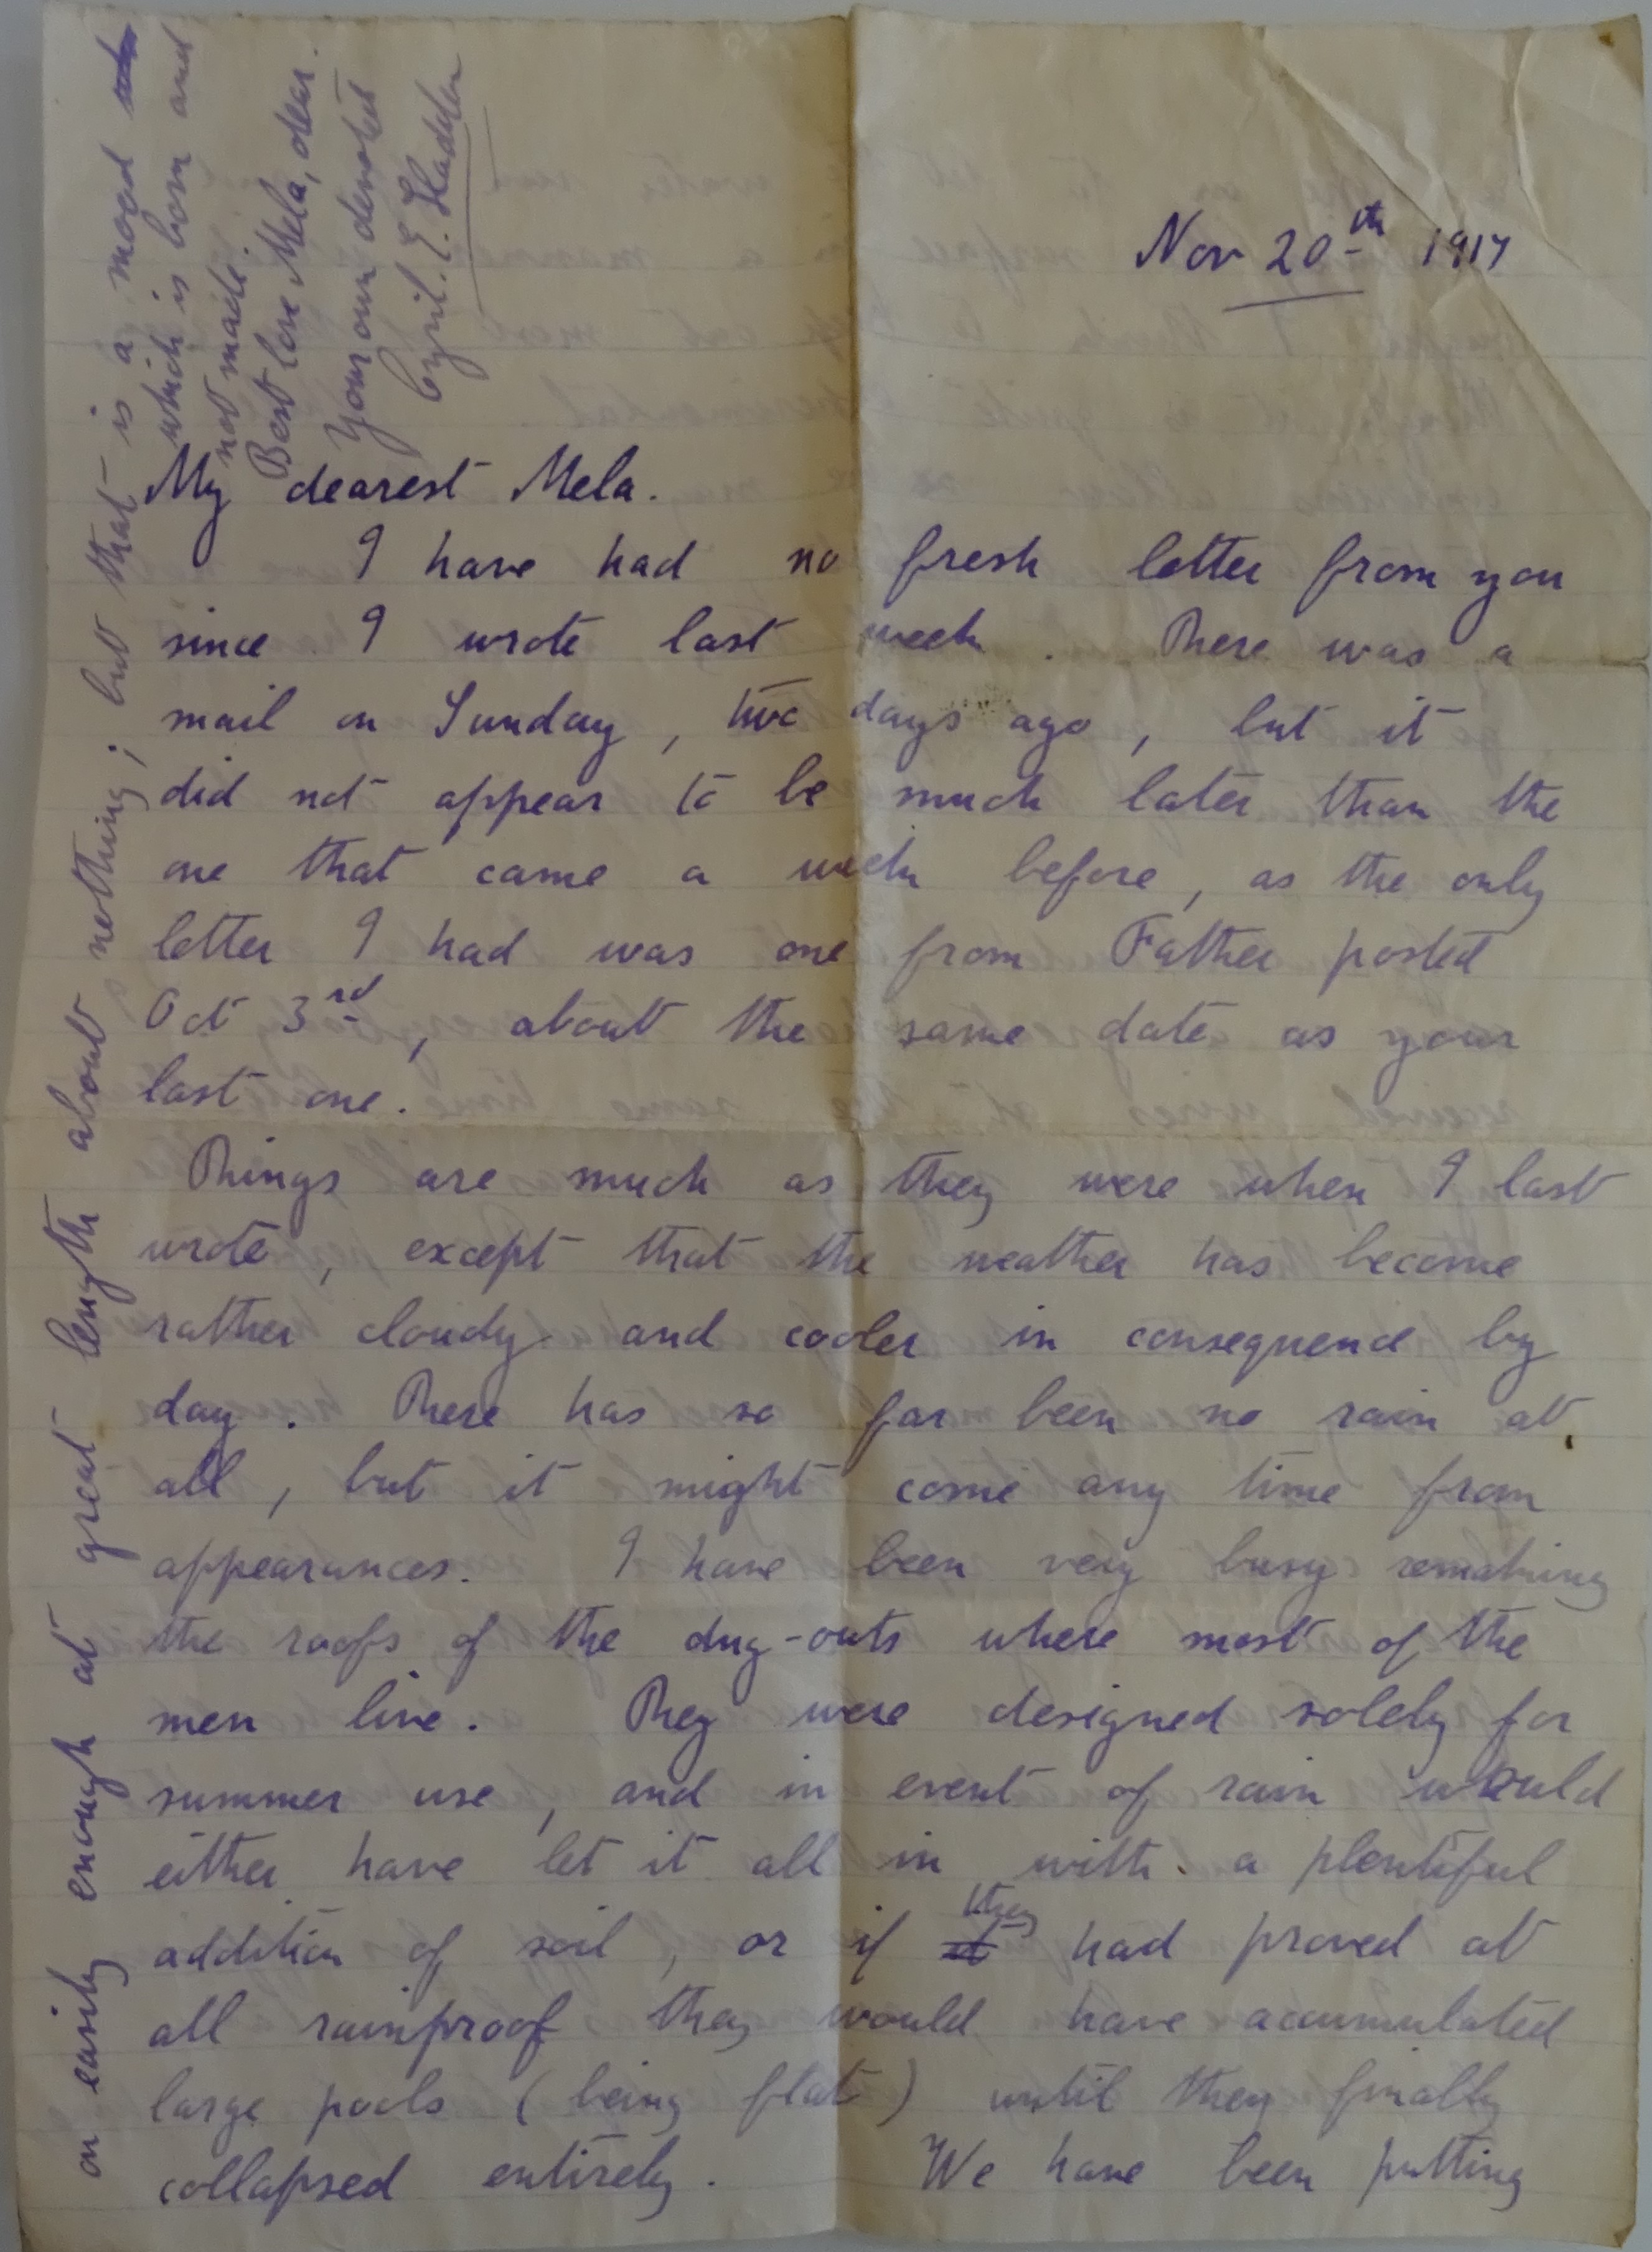 Nov 20th 1917
My dearest Mela.
I have had no fresh letter from you
since I wrote last week. There was a
mail on Sunday, two days ago, but it
did not appear to be much later than the
one that came a week before, as the only
letter I had was one from Father posted
Oct 3rd, about the same date as your
last one.
Things are much as they were when I last
wrote, except that the weather has become
rather cloudy and cooler in consequence by
day. There has so far been no rain at
all, but it might come any time from
appearances. I have been very busy remaking
the roofs of the dug-outs where most of the
men live. They were designed solely for
summer use, and in event of rain would
either have let it all in with a plentiful
addition of soil, or if they had proved at
all rainproof they would have accumulated
large pools (being flat) until they finally
collapsed entirely. We have been putting
on easily enough at great length about nothing; but that is a mood
which is born and
not made.
Best love Mela, dear.
Your own devoted
Cyril. E. Sladden